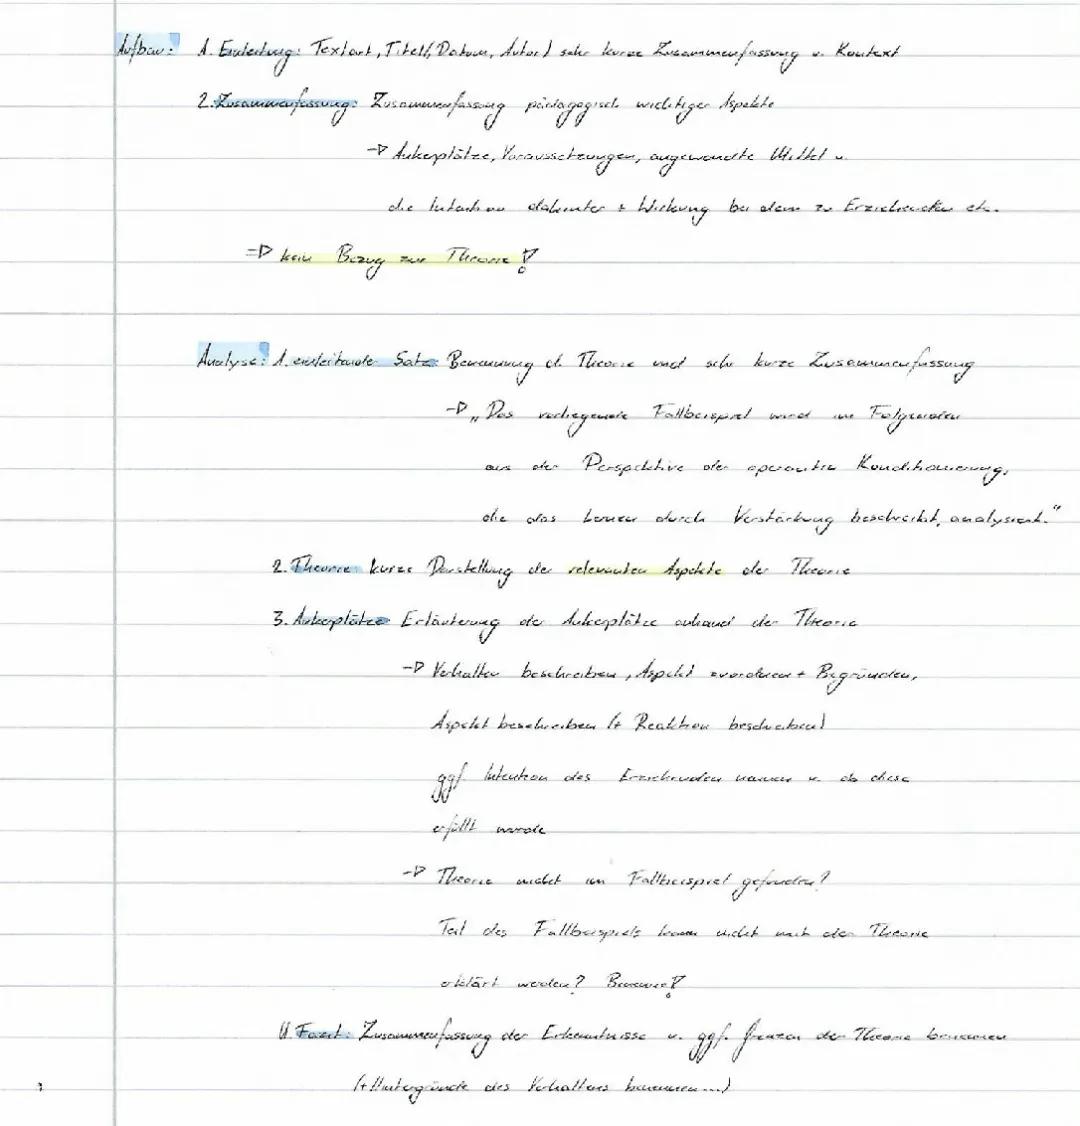 Aufbau: 1. Einleitung: Textart, Titel, Datum, Autor) sehr kurze Zusammenfassung u. Kontext
2. Zusammenfassung: Zusammenfassung pädagogisch wichtiger Aspekte
→ Ankerplätze, Voraussetzungen, angewandte Mittel u.
die Intention dahinter + Wirkung bei dem zu Erziehenden etc.
⇒ kein Bezug zur Theorie!
Analyse: 1. einleitender Satz: Benennung d. Theorie und sehr kurze Zusammenfassung
→ „Das vorliegende Fallbeispiel wird im Folgenden
aus der Perspektive der operanten Konditionierung,
die das Lernen durch Verstärkung beschreibt, analysiert."
2. Theorie: kurze Darstellung der relevanten Aspekte der Theorie
3. Ankerplätze Erläuterung der Ankerplätze anhand der Theorie
→ Verhalten beschreiben, Aspekt zuordnen + Begründen,
Aspekt beschreiben (+ Reaktion beschreiben)
ggf. Intention des Erziehenden nennen u. ob diese
erfüllt wurde
→ Theorie nicht im Fallbeispiel gefunden?
Teil des Fallbeispiels kann nicht mit der Theorie
erklärt werden? Benenne!
4. Fazit: Zusammenfassung der Erkenntnisse u. ggf. Grenzen der Theorie benennen
(+ Hintergründe des Verhaltens benennen...)